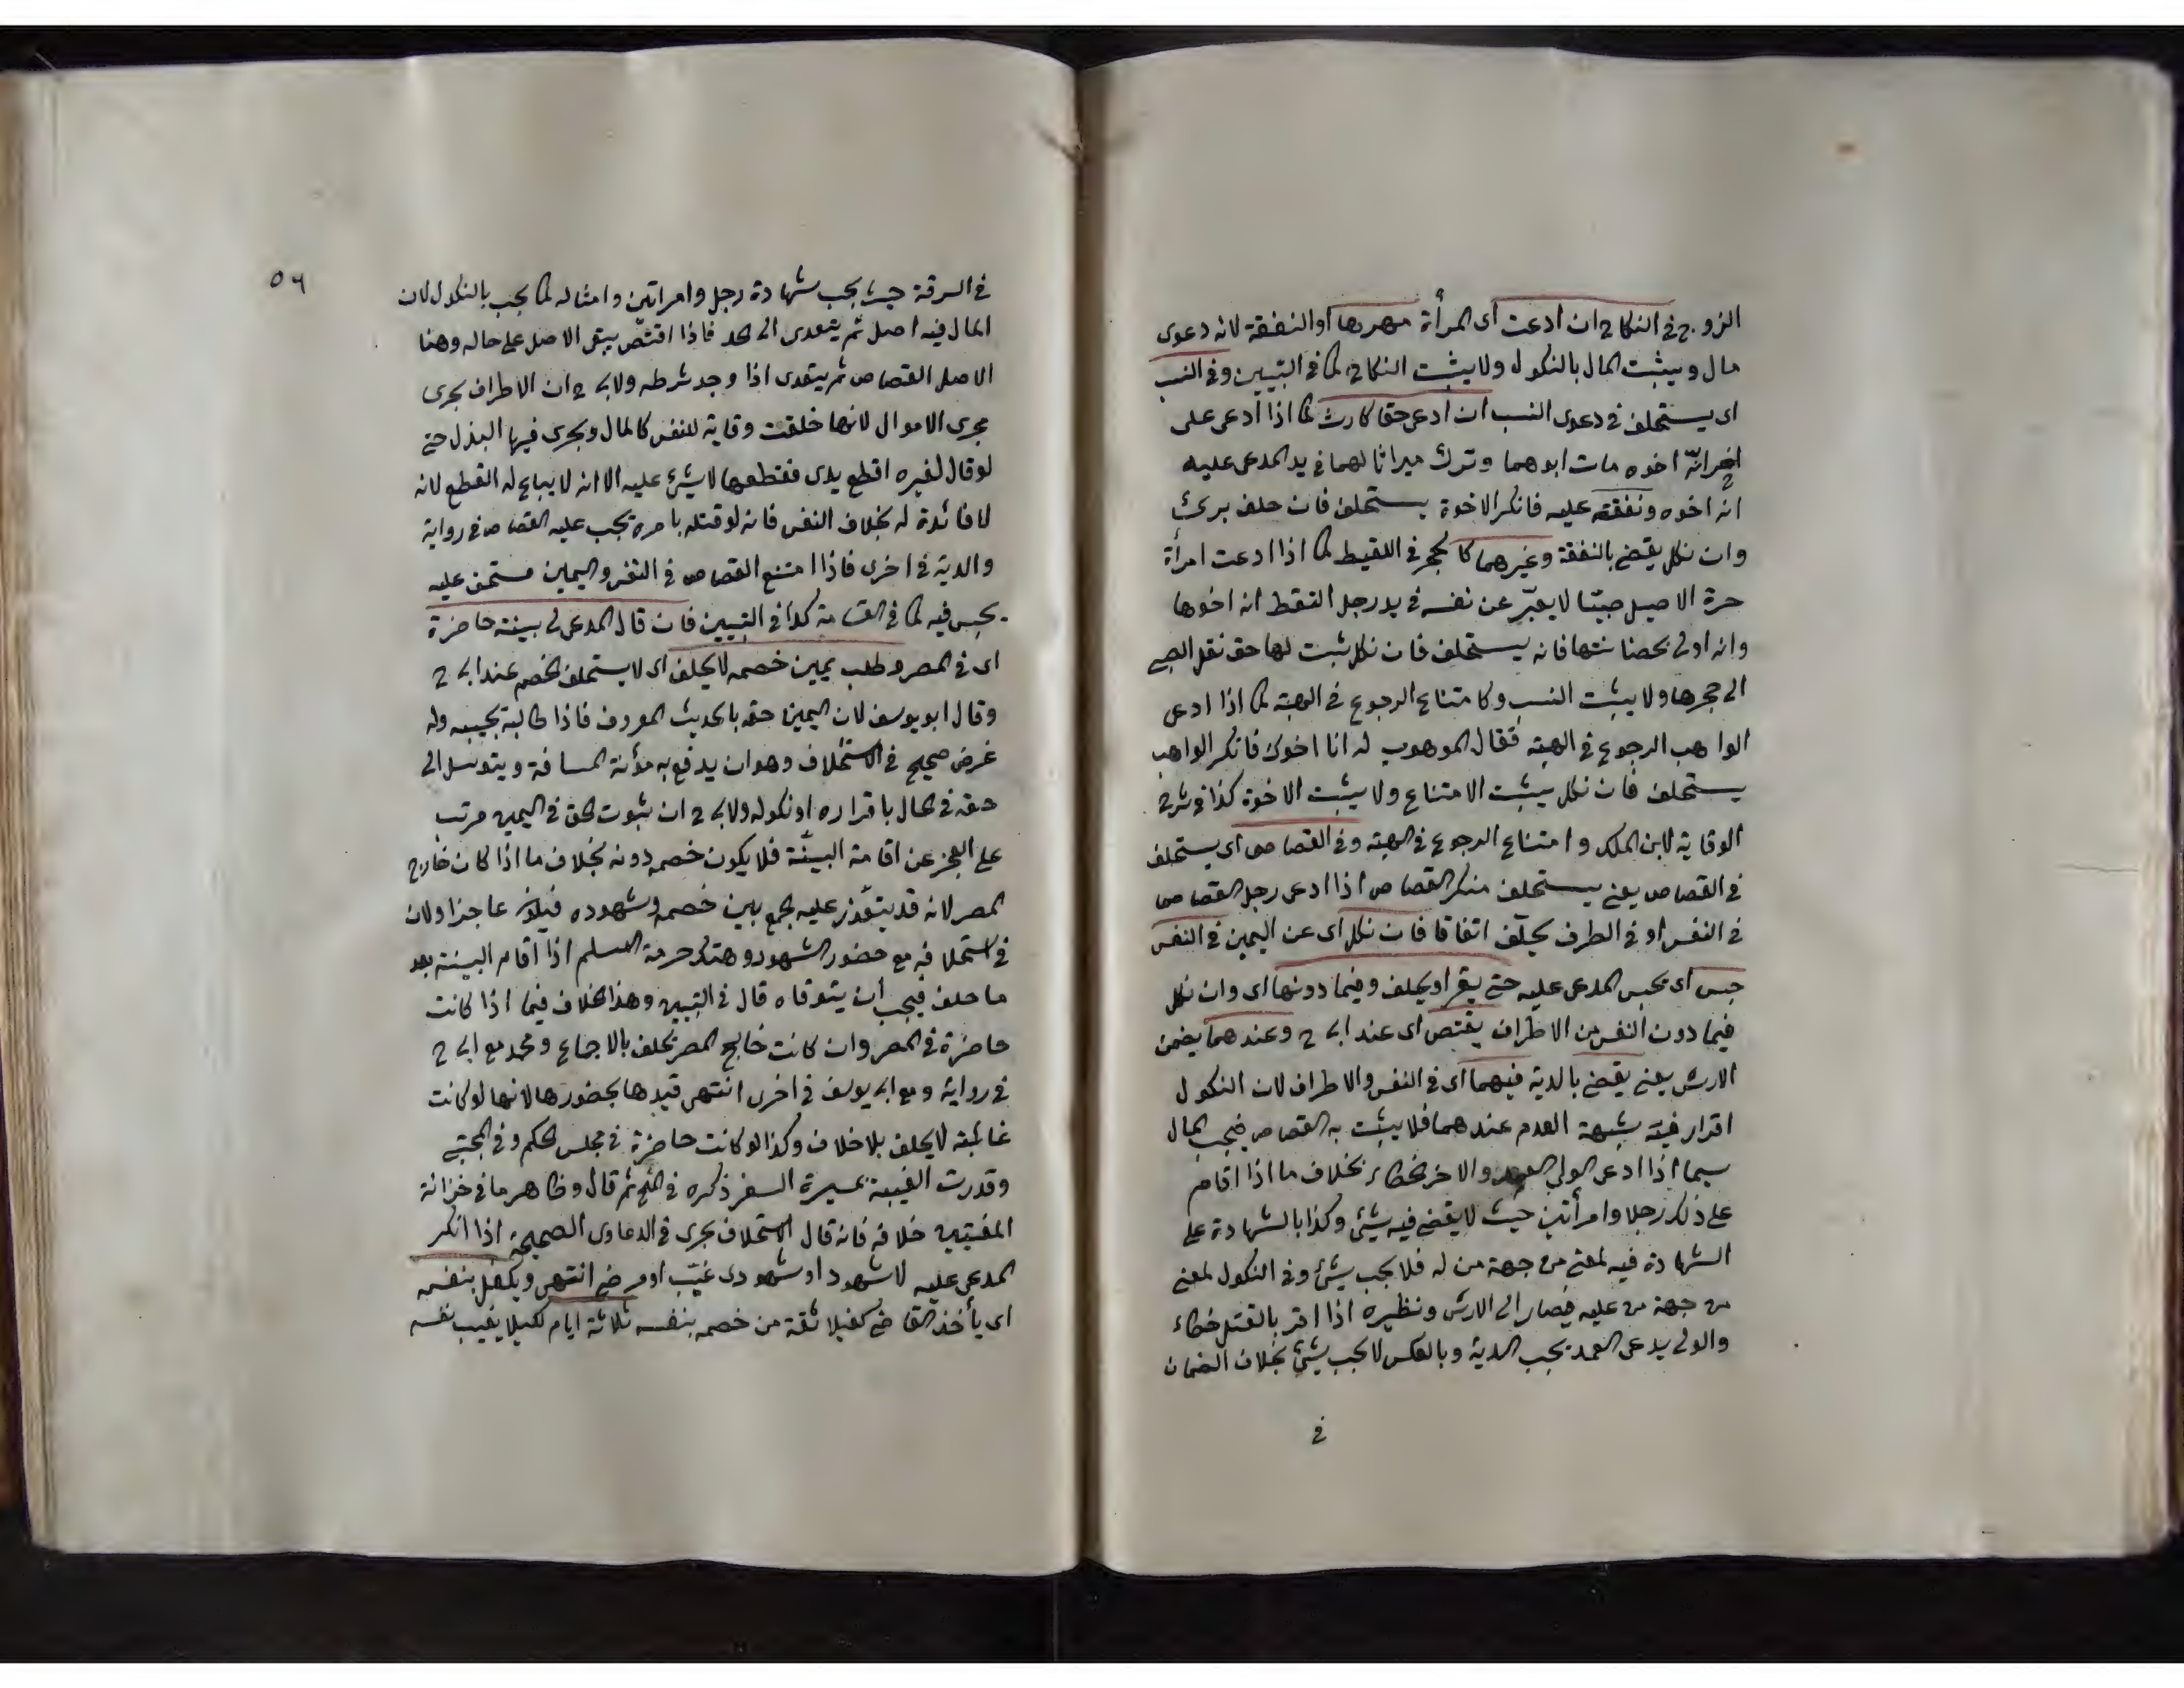 الزوج في النكاح ان ادعت اى المرأة مهرها او النفقة لانه دعوى
مال ويثبت المال بالنكول ولا يثبت النكاح كما في التبيين وفي النسب
اى يستحلف في دعوى النسب ان ادعى حقا كارث كما اذا ادعى على
اخر انه اخوه مات ابوهما وترك ميراثا لهما في يد المدعى عليه
انه اخوه ونفقته عليه فانكر الاخوة يستحلف فان حلف برئ
وان نكل يقضى بالنفقة وغيرهما كالحجر في اللقيط كما اذا ادعت امرأة
حرة الاصيل صبيّا لا يعبّر عن نفسه في يد رجل التقط انه اخوها
وانه اولى بحضانتها فانه يستحلف فان نكل ثبت لها حق نقل الصبي
الى حجرها ولا يثبت النسب وكامتناع الرجوع في الهبة كما اذا ادعى
الواهب الرجوع في الهبة فقال الموهوب له انا اخوك فانكر الواهب
يستحلف فان نكل يثبت الامتناع ولا يثبت الاخوة كذا في شرح
الوقاية لابن الملك وامتناع الرجوع في الهبة وفي القصاص اى يستحلف
في القصاص يعنى يستحلف منكر القصاص اذا ادعى رجل القصاص
في النفس او في الطرف يحلّف اتفاقا فان نكل اى عن اليمين في النفس
حبس اى يحبس المدعى عليه حتى يقر او يحلف وفيما دونها اى وان نكل
فيما دون النفس من الاطراف يقتص اى عند ابى ح وعندهما يضمن
الارش يعنى يقضى بالدية فيهما اى في النفس والاطراف لان النكول
اقرار فيه شبهة العدم عندهما فلا يثبت به القصاص فيجب المال
سيما اذا ادعى الولي العمد والاخر الخطاء بخلاف ما اذا اقام
على ذلك رجلا وامرأتين حيث لا يقضى فيه شئ وكذا بالشهادة على
الشهادة فيه لمعنى من جهة من له فلا يجب شئ وفي النكول لمعنى
من جهة من عليه فيصار الى الارش ونظيره اذا اقر بالقتل خطاء
والولى يدعى العمد يجب الدية وبالعكس لا يجب شئ بخلاف الضمان
في
٥٦
في السرقة حيث يجب شهادة رجل وامراتين وامثاله كما يجب بالنكول لان
المال فيه اصل ثم يتعدى الى الحد فاذا اقتصّ يبقى الاصل على حاله وهنا
الاصل القصاص ثم يتعدى اذا وجد شرطه ولابى ح ان الاطراف يجرى
مجرى الاموال لانها خلقت وقاية للنفس كالمال ويجرى فيها البذل حتى
لو قال لغيره اقطع يدى فقطعها لا شئ عليه الا انه لا يباح له القطع لانه
لا فائدة له بخلاف النفس فانه لو قتله بامره يجب عليه القصاص في رواية
والدية في اخرى فاذا امتنع القصاص في النفس واليمين مستحق عليه
يحبس فيه كما في القسامة كذا في التبيين فان قال المدعى لى بينة حاضرة
اى في المصر وطلب يمين خصمه لا يحلف اى لا يستحلف الخصم عند ابى ح
وقال ابو يوسف لان اليمين حقه بالحديث المعروف فاذا طالبة يجيبه وله
غرض صحيح في الاستحلاف وهو ان يدفع به مؤنة المسافة ويتوسل الى
حقه في الحال باقراره او نكوله ولابى ح ان ثبوت الحق في اليمين مرتب
على العجز عن اقامة البينة فلا يكون خصمه دونه بخلاف ما اذا كان خارج
المصر لانه قد يتعذر عليه الجمع بين خصمه وشهوده فيكون عاجزا ولان
في استحلافه مع حضور الشهود وهتك حرمة المسلم اذا اقام البينة بعد
ما حلف فيجب ان يتوقاه قال في التبيين وهذا الخلاف فيما اذا كانت
حاضرة في المصر وان كانت خارج المصر يحلف بالاجماع ومحمد مع ابى ح
في رواية ومع ابى يوسف في اخرى انتهى قيد ها بحضورها لانها لو كانت
غائبة لا يحلف بلا خلاف وكذا لو كانت حاضرة في مجلس الحكم وفي المجتبى
وقدرت الغيبة بمسيرة السفر ذكره في المنح ثم قال وظاهر ما في خزانة
المفتيين خلافه فانه قال الاستحلاف يجرى في الدعاوى الصحيحة اذا انكر
المدعى عليه لا شهود او شهودى غيّب او مرضى انتهى ويكفل بنفسه
اى يأخذ القاضى كفيلا ثقة من خصمه بنفسه ثلاثة ايام كيلا يغيب نفسه